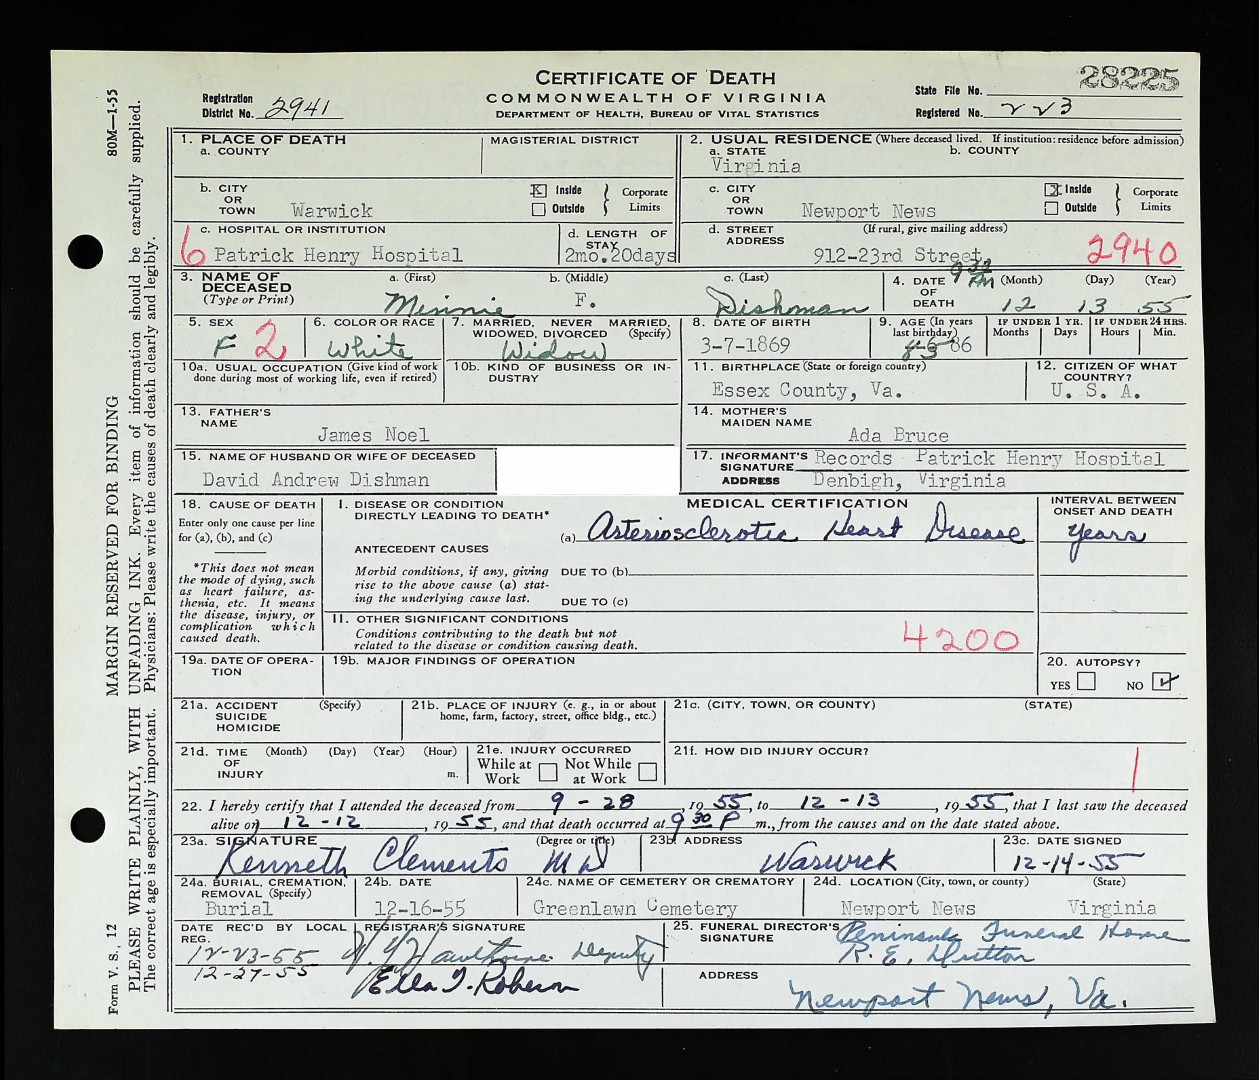 CERTIFICATE OF DEATH
COMMONWEALTH OF VIRGINIA
DEPARTMENT OF HEALTH, BUREAU OF VITAL STATISTICS
Registration District No. 2941
State File No. 28225
Registered No. 223
1. PLACE OF DEATH
a. COUNTY
MAGISTERIAL DISTRICT
2. USUAL RESIDENCE (Where deceased lived. If institution: residence before admission)
a. STATE Virginia
b. COUNTY
b. CITY OR TOWN Warwick
X Inside
Outside
Corporate Limits
c. CITY OR TOWN Newport News
X Inside
Outside
Corporate Limits
c. HOSPITAL OR INSTITUTION
6 Patrick Henry Hospital
d. LENGTH OF STAY
2mo.20days
d. STREET ADDRESS (If rural, give mailing address)
912-23rd Street
2940
3. NAME OF DECEASED (Type or Print)
a. (First) Minnie
b. (Middle) F.
c. (Last) Dishman
4. DATE OF DEATH (Month) (Day) (Year)
12 13 55
5. SEX
F 2
6. COLOR OR RACE
White
7. MARRIED, NEVER MARRIED, WIDOWED, DIVORCED (Specify)
Widow
8. DATE OF BIRTH
3-7-1869
9. AGE (In years last birthday)
86
IF UNDER 1 YR. Months Days
IF UNDER 24 HRS. Hours Min.
10a. USUAL OCCUPATION (Give kind of work done during most of working life, even if retired)
10b. KIND OF BUSINESS OR INDUSTRY
11. BIRTHPLACE (State or foreign country)
Essex County, Va.
12. CITIZEN OF WHAT COUNTRY?
U. S. A.
13. FATHER'S NAME
James Noel
14. MOTHER'S MAIDEN NAME
Ada Bruce
15. NAME OF HUSBAND OR WIFE OF DECEASED
David Andrew Dishman
17. INFORMANT'S SIGNATURE Records Patrick Henry Hospital
ADDRESS Denbigh, Virginia
18. CAUSE OF DEATH
Enter only one cause per line for (a), (b), and (c)
*This does not mean the mode of dying, such as heart failure, asthenia, etc. It means the disease, injury, or complication which caused death.
MEDICAL CERTIFICATION
I. DISEASE OR CONDITION DIRECTLY LEADING TO DEATH*
(a) Arteriosclerotic Heart Disease
INTERVAL BETWEEN ONSET AND DEATH
years
ANTECEDENT CAUSES
Morbid conditions, if any, giving rise to the above cause (a) stating the underlying cause last.
DUE TO (b)
DUE TO (c)
II. OTHER SIGNIFICANT CONDITIONS
Conditions contributing to the death but not related to the disease or condition causing death.
4200
19a. DATE OF OPERATION
19b. MAJOR FINDINGS OF OPERATION
20. AUTOPSY?
YES NO
21a. ACCIDENT SUICIDE HOMICIDE (Specify)
21b. PLACE OF INJURY (e. g., in or about home, farm, factory, street, office bldg., etc.)
21c. (CITY, TOWN, OR COUNTY) (STATE)
21d. TIME OF INJURY (Month) (Day) (Year) (Hour) m.
21e. INJURY OCCURRED
While at Work
Not While at Work
21f. HOW DID INJURY OCCUR?
1
22. I hereby certify that I attended the deceased from 9-28, 1955, to 12-13, 1955, that I last saw the deceased
alive on 12-12, 1955, and that death occurred at 9 30 P m., from the causes and on the date stated above.
23a. SIGNATURE (Degree or title)
Kenneth Clements MD
23b. ADDRESS
Warwick
23c. DATE SIGNED
12-14-55
24a. BURIAL, CREMATION, REMOVAL (Specify)
Burial
24b. DATE
12-16-55
24c. NAME OF CEMETERY OR CREMATORY
Greenlawn Cemetery
24d. LOCATION (City, town, or county) (State)
Newport News Virginia
DATE REC'D BY LOCAL REG.
12-23-55
12-27-55
REGISTRAR'S SIGNATURE
Hawthorne Deputy
Ella
25. FUNERAL DIRECTOR'S SIGNATURE
Peninsula Funeral Home
R. E. Dutton
ADDRESS
Newport News, Va.
Form V. S., 12
80M—1-55
MARGIN RESERVED FOR BINDING
PLEASE WRITE PLAINLY, WITH UNFADING INK. Every item of information should be carefully supplied.
The correct age is especially important. Physicians: Please write the causes of death clearly and legibly.